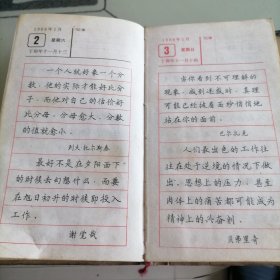 1988年1月
记事
2
星期六
丁卯年十一月十三
一个人就好象一个分
数,他的实际才能好比分
子,而他对自己的估价好
比分母,分母愈大,分数
的值就愈小。
列夫托尔斯泰
最好不是在夕阳西下
的时候去幻想什么,而要
在旭日初升的时候即投入
工作。
谢觉哉
1988年1月
记事
3
星期日
丁卯年十一月十四
当你看到不可理解的
现象,感到迷惑时,真理
可能已经披着面纱悄悄地
站在你的面前。
巴尔扎克
人们最出色的工作往
往在处于逆境的情况下做
出,思想上的压力,甚至
肉体上的痛苦都可能成为
精神上的兴奋剂。
贝弗里奇